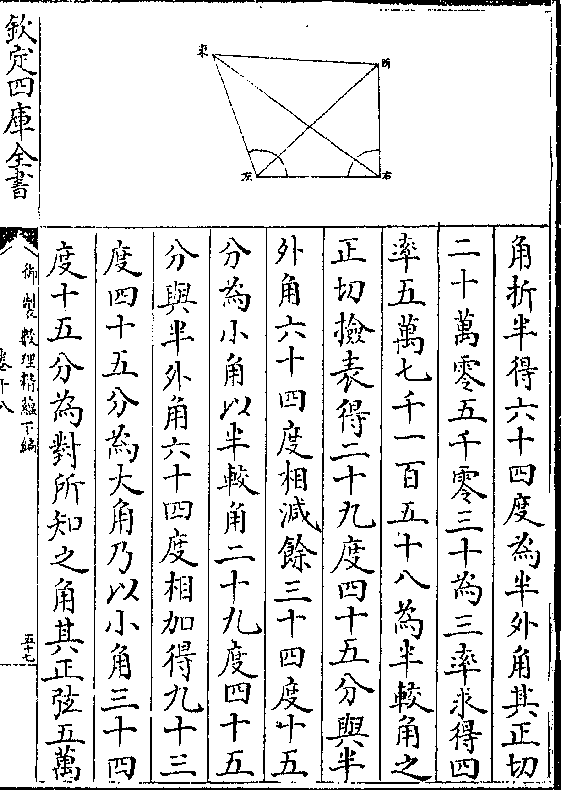 角折半得六十四度為半外角其正切
二十萬零五千零三十為三率求得四
率五萬七千一百五十八為半較角之
正切撿表得二十九度四十五分與半
外角六十四度相減餘三十四度十五
分為小角以半較角二十九度四十五
分與半外角六十四度相加得九十三
度四十五分為大角乃以小角三十四
度十五分為對所知之角其正弦五萬
東
左
右
欽定四庫全書
御製數理精蘊下編
卷十八
五十七